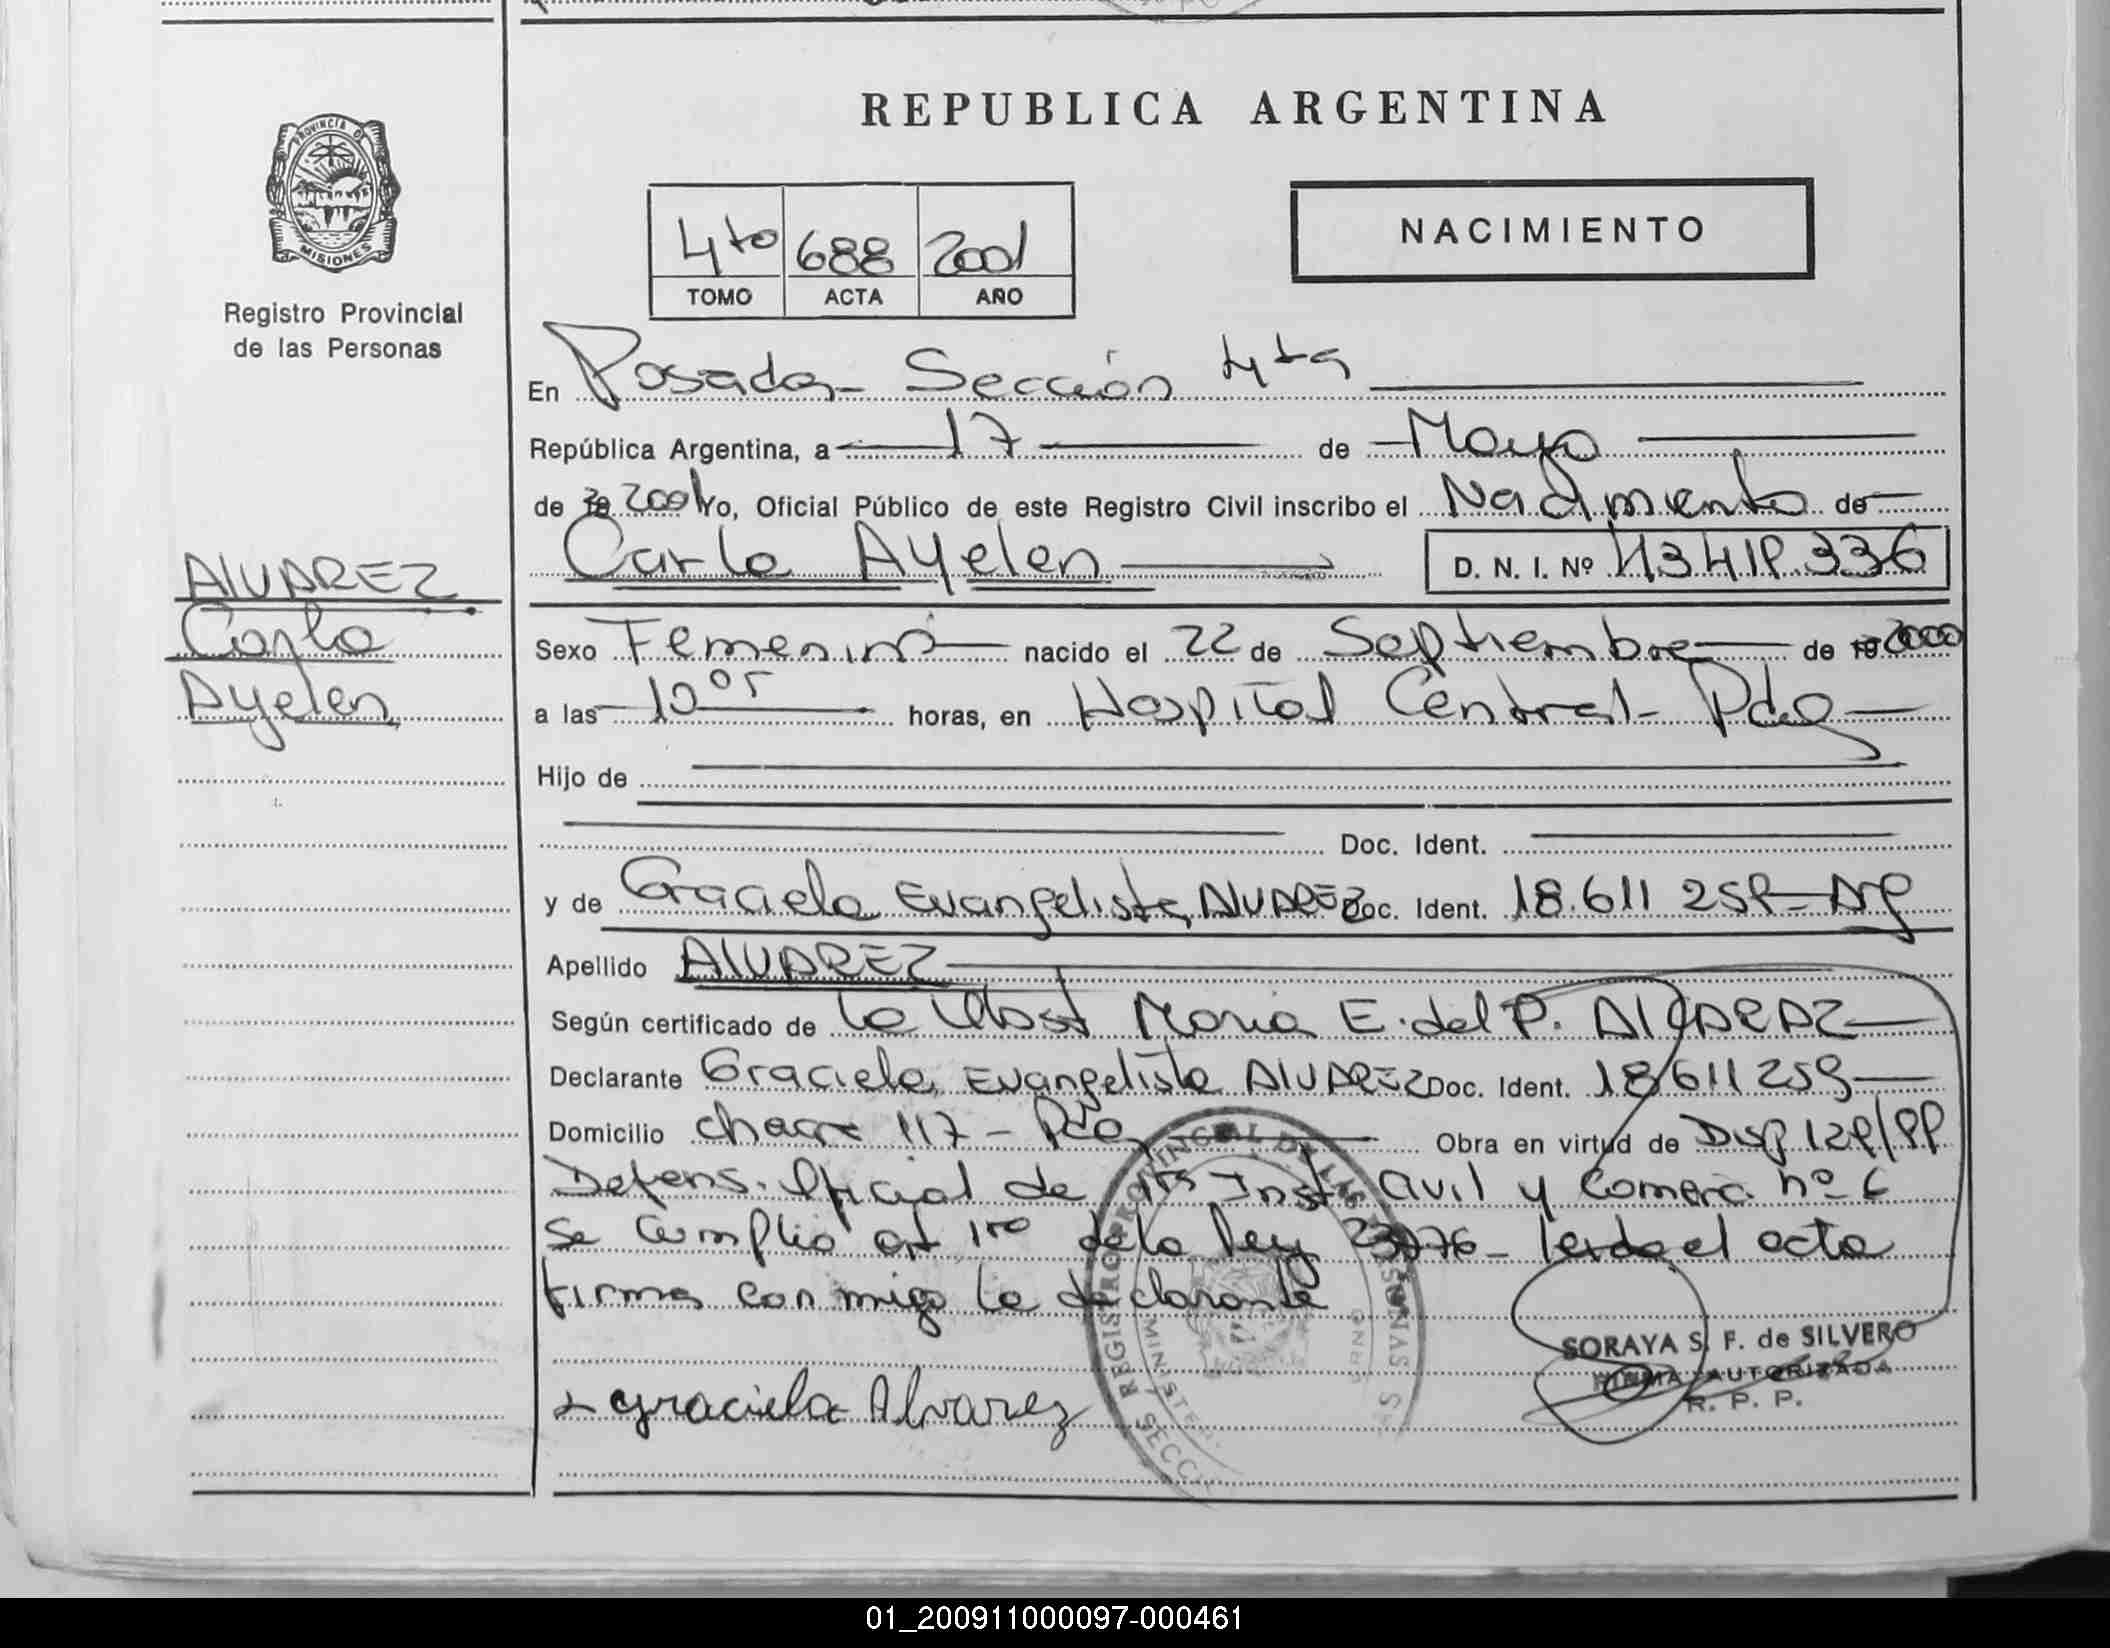 REPUBLICA ARGENTINA
PROVINCIA DE MISIONES
Registro Provincial
de las Personas
4to 688 2001
TOMO ACTA AÑO
NACIMIENTO
En Posadas - Sección 4ta
República Argentina, a 17 de Mayo
de 2001 Yo, Oficial Público de este Registro Civil inscribo el Nacimiento de
Carla Ayelen D. N. I. Nº
ALVAREZ
Carla
Ayelen
Sexo Femenino nacido el 22 de Septiembre de 2000
a las 10 05 horas, en Hospital Central - Pdas
Hijo de
Doc. Ident.
y de Graciela Evangelista ALVAREZ Doc. Ident. 18.611 259 - Arg
Apellido ALVAREZ
Según certificado de la Obst Maria E. del P. ALCARAZ
Declarante Graciela Evangelista ALVAREZ Doc. Ident. 18611259
Domicilio chacra 117 - Obra en virtud de Disp 129/99
Defens. Oficial de 1ra Inst Civil y Comerc. nº 6
Se cumplió art 1ro de la ley leida el acta
firma conmigo la declarante
SORAYA S. F. de SILVERO
FIRMA AUTORIZADA
R. P. P.
Graciela Alvarez
01_200911000097-000461